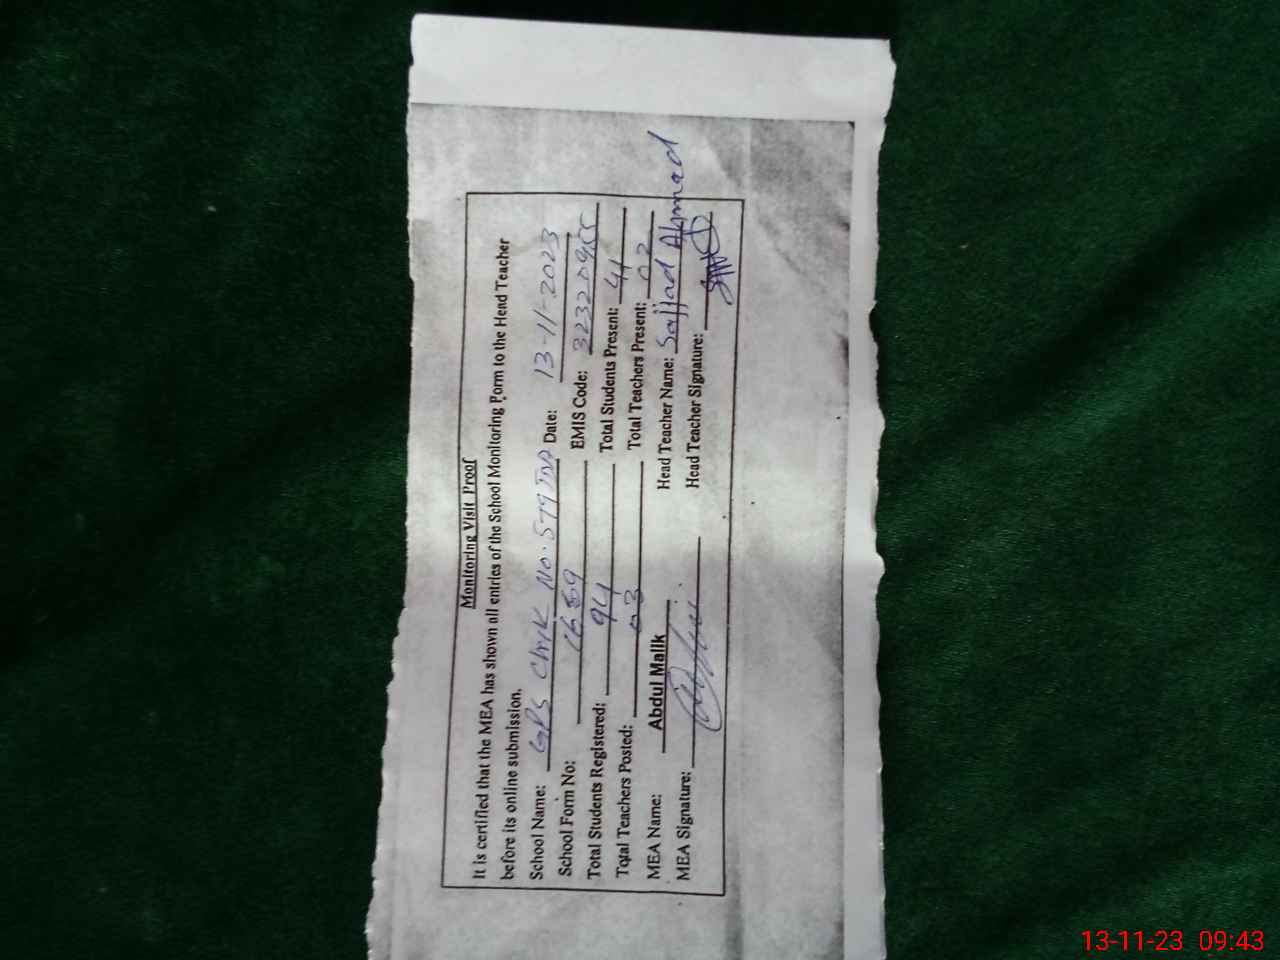 Monitoring Visit Proof
It is certified that the MEA has shown all entries of the School Monitoring Form to the Head Teacher
before its online submission.
School Name: GPS Chak No. 579 TDA Date: 13-11-2023
School Form No: 1659 EMIS Code: 32320955
Total Students Registered: 94 Total Students Present: 41
Total Teachers Posted: 03 Total Teachers Present: 02
MEA Name: Abdul Malik Head Teacher Name: Sajjad Ahmad
MEA Signature: Head Teacher Signature:
13-11-23 09:43